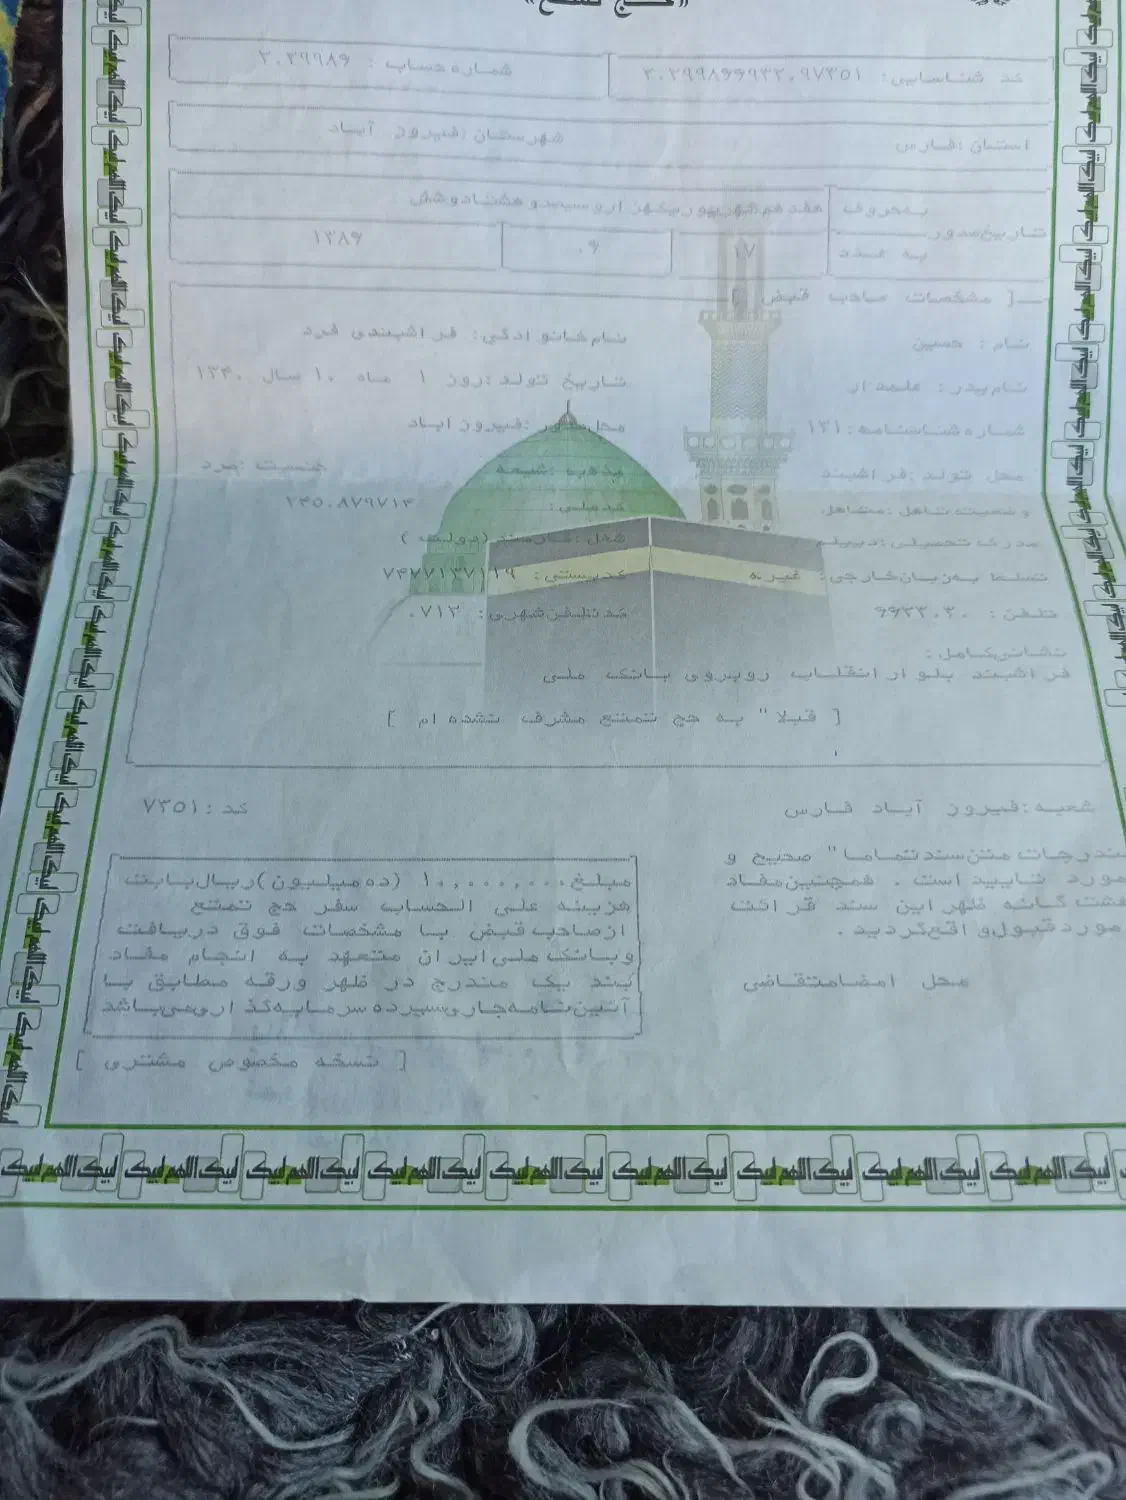 «حج تمتع»
کد شناسایی: ۲۰۲۹۹۸۶۶۹۳۲۰۹۷۳۵۱ شماره حساب: ۲۰۲۹۹۸۶
استان: فارس شهرستان: فیروز آباد
به حروف هفدهم شهریور یکهزار و سیصد و هشتاد و شش
تاریخ صدور
به عدد ۱۷ ۰۶ ۱۳۸۶
[ مشخصات صاحب قبض ]
نام: حسین نام خانوادگی: فراشبندی فرد
نام پدر: علمدار تاریخ تولد: روز ۱ ماه ۱۰ سال ۱۳۴۰
شماره شناسنامه: ۱۳۱ محل صدور: فیروز آباد
محل تولد: فراشبند مذهب: شیعه جنسیت: مرد
وضعیت تاهل: متاهل کد ملی: ۲۴۵۰۸۷۹۷۱۴
مدرک تحصیلی: دیپلم شغل: کارمند (دولت)
تسلط به زبان خارجی: غیره کد پستی: ۷۴۷۷۱۳۷۱۱۹
تلفن: ۶۶۲۳۰۳۰ کد تلفن شهری: ۰۷۱۲
نشانی کامل:
فراشبند بلوار انقلاب روبروی بانک ملی
[ قبلا" به حج تمتع مشرف نشده ام ]
شعبه: فیروز آباد فارس کد: ۷۳۵۱
مندرجات متن سند تماما" صحیح و
مورد تایید است. همچنین مفاد
هشت گانه ظهر این سند قرائت
مورد قبول واقع گردید.
محل امضا متقاضی
مبلغ ۱۰،۰۰۰،۰۰۰ (ده میلیون) ریال بابت
هزینه علی الحساب سفر حج تمتع
از صاحب قبض با مشخصات فوق دریافت
و بانک ملی ایران متعهد به انجام مفاد
بند یک مندرج در ظهر ورقه مطابق با
آئین نامه جاری سپرده سرمایه گذاری می باشد
[ نسخه مخصوص مشتری ]
لبیک اللهم لبیک لبیک اللهم لبیک لبیک اللهم لبیک لبیک اللهم لبیک لبیک اللهم لبیک لبیک اللهم لبیک لبیک اللهم لبیک لبیک اللهم لبیک لبیک اللهم لبیک